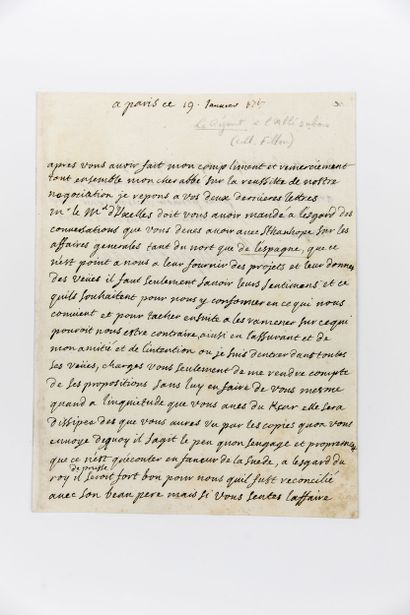 a paris ce 19. Januier 1717
Le Régent à l'abbé Dubois
(coll. Fillon)
apres vous auoir fait mon compliment et remerciement
tout ensemble mon cher abbé sur la reussite de nostre
negociation je repons a vos deux dernieres lettres
mr. le Mal. d'Uxelles doit vous auoir mandé a lesgard des
conuersations que vous deues auoir auec Sthanhope sur les
affaires generales tant du nort que de lespagne, que ce
n'est point a nous a leur fournir des projets et leur donner
des veües il faut seulement sauoir leurs sentimens et ce
quils souhaitent pour nous y conformer en ce qui nous
conuient et pour tacher ensuite a les ramener sur ce qui
pouroit nous estre contraire, ainsi en l'assurant et de
mon amitié et de l'intention ou je suis dentrer dans toutes
ses veües, charges vous seulement de me rendre compte
de ses propositions sans luy en faire de vous mesme
quand a linquietude que vous aues du Kzar elle sera
dissipée des que vous aures vu par les copies quon vous
enuoye dequoy il sagit le peu quon sengage et proprement
que ce n'est qu'econter en faueur de la Suede, a lesgard du
roy de prusse il seroit fort bon pour nous quil fust reconcilié
auec son beau pere mais si vous sentes laffaire